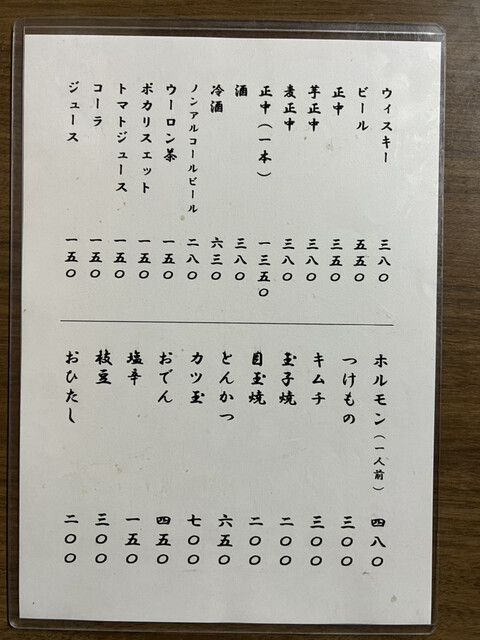 ウィスキー 三八〇
ビール 五五〇
正中 三五〇
芋正中 三八〇
麦正中 三八〇
正中(一本) 一三五〇
酒 三八〇
冷酒 六三〇
ノンアルコールビール 二八〇
ウーロン茶 一五〇
ポカリスェット 一五〇
トマトジュース 一五〇
コーラ 一五〇
ジュース 一五〇
ホルモン(一人前) 四八〇
つけもの 三〇〇
キムチ 三〇〇
玉子焼 二〇〇
目玉焼 二〇〇
とんかつ 六五〇
カツ玉 七〇〇
おでん 四五〇
塩辛 一五〇
枝豆 三〇〇
おひたし 二〇〇